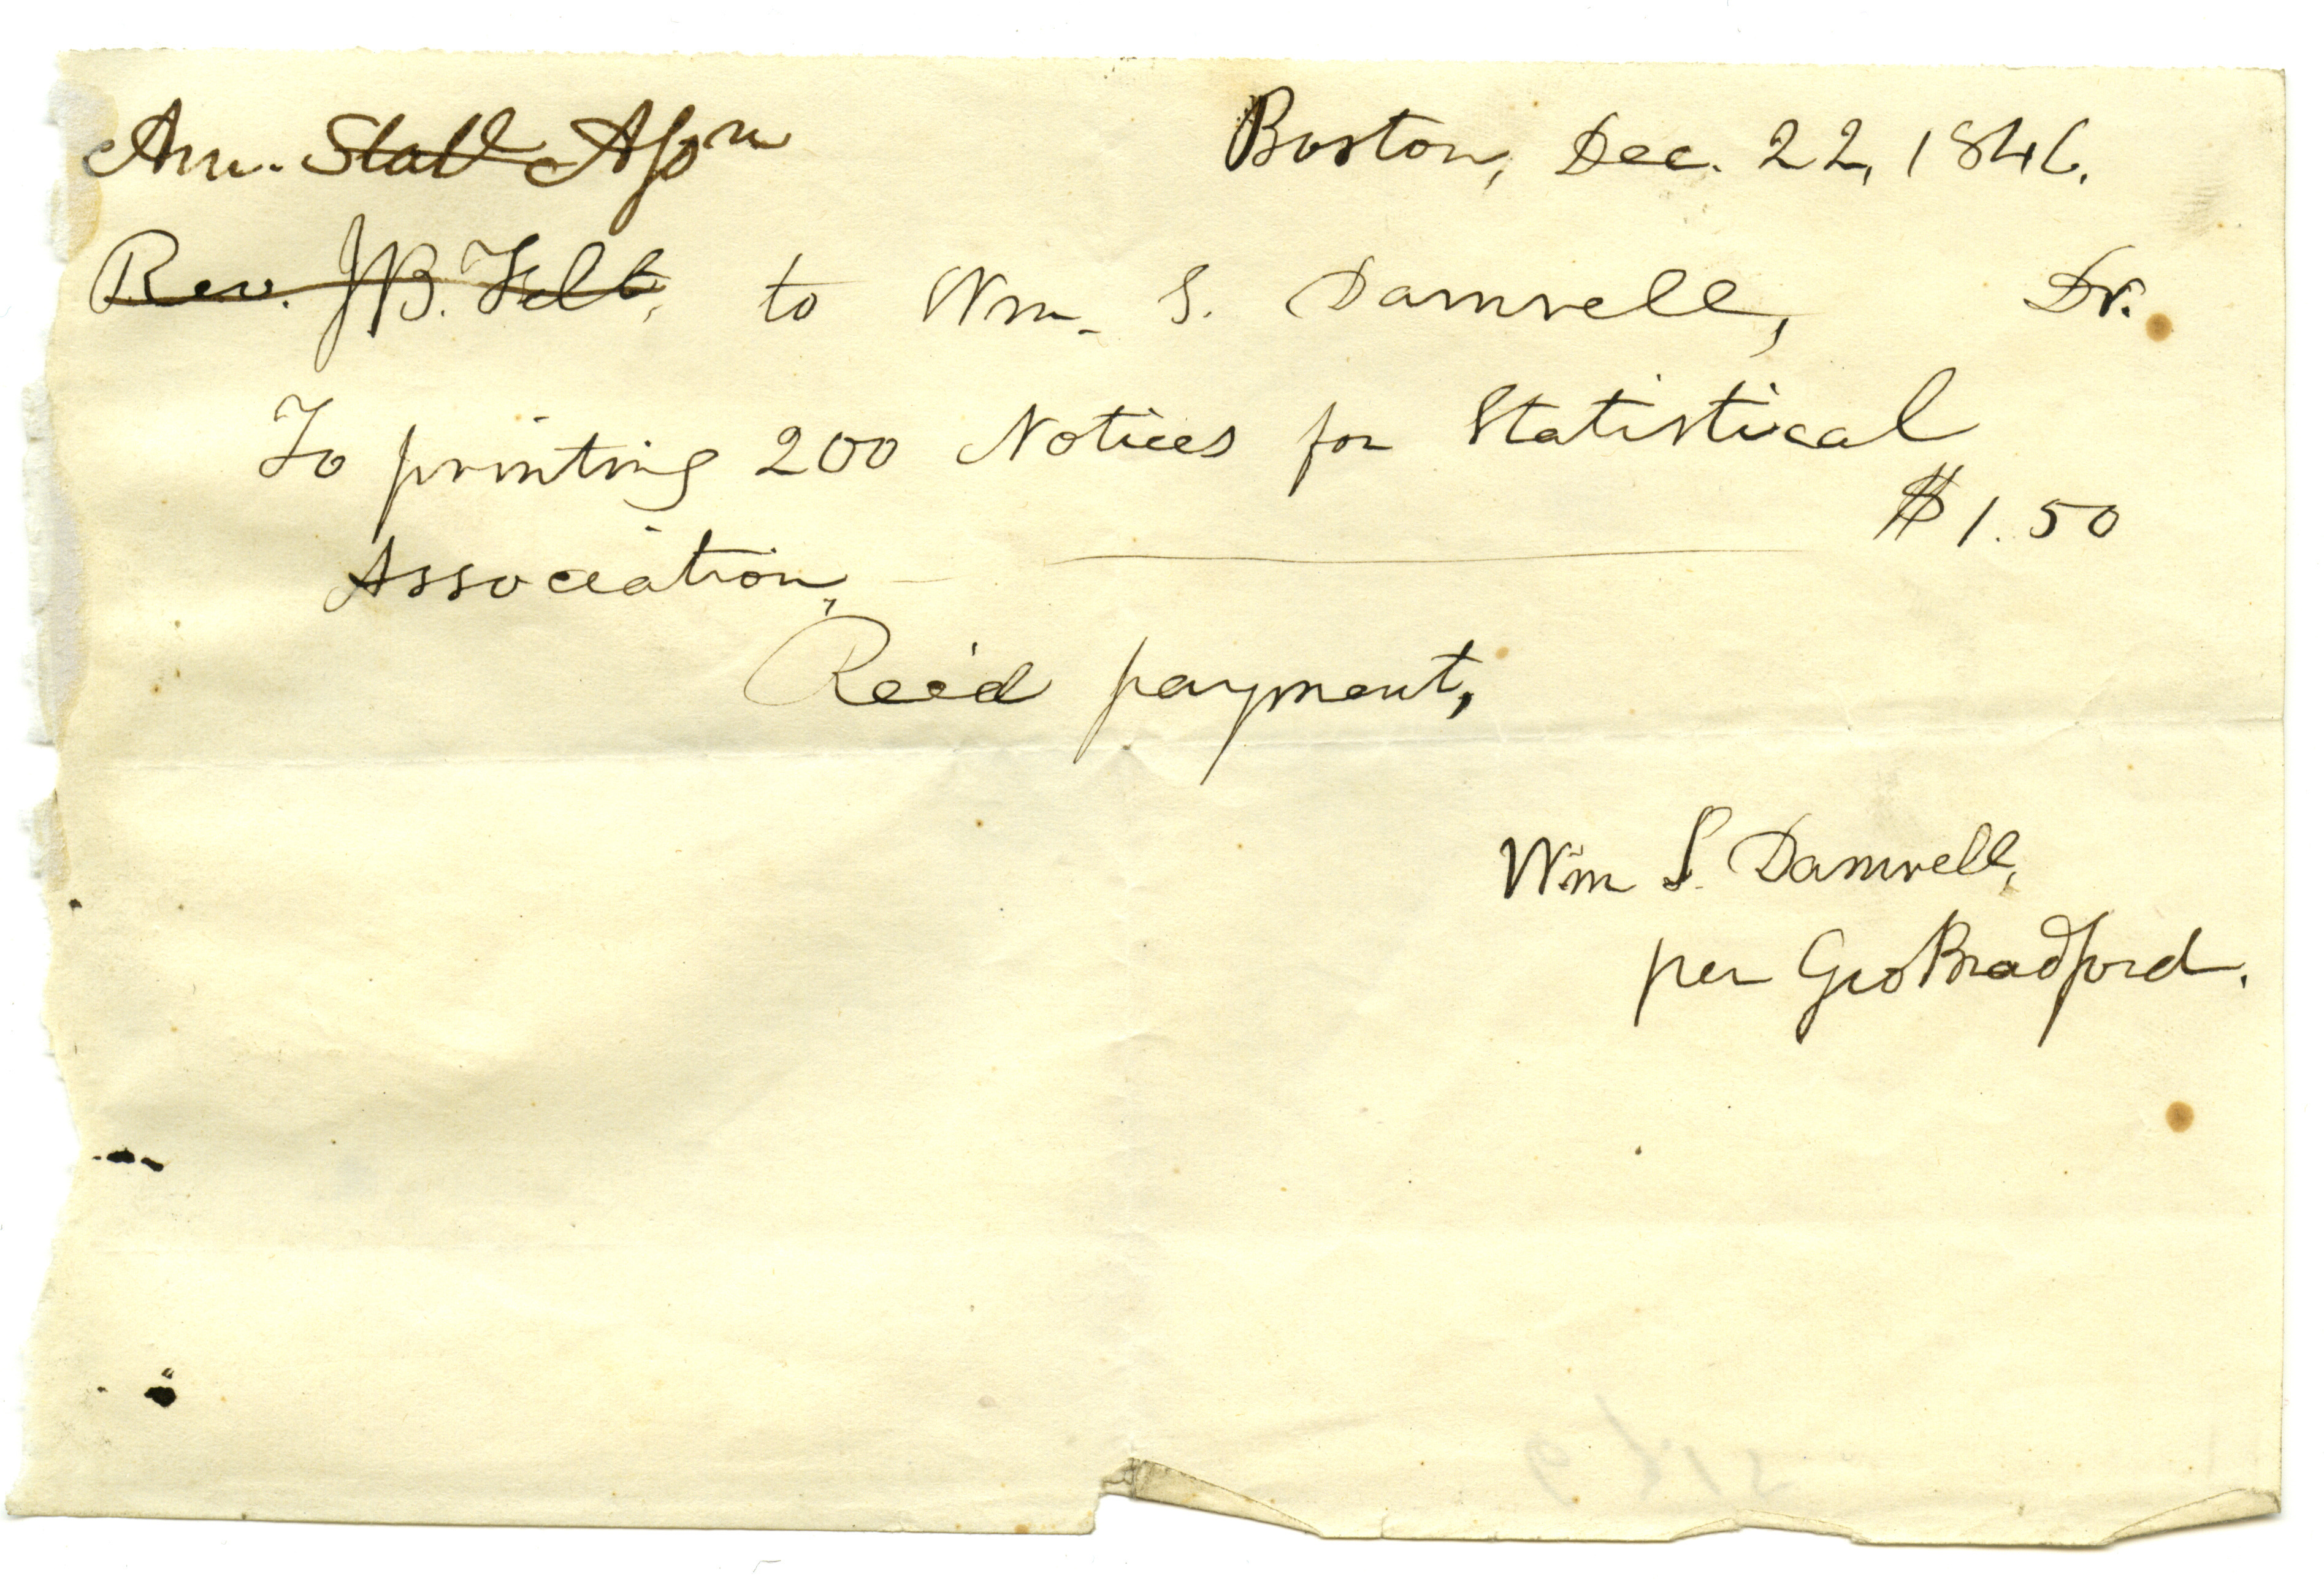 Am. Statl Asson
Boston, Dec. 22, 1846.
Rev. J B. Felt, to Wm. S. Damrell, Dr.
To printing 200 Notices for Statistical
Association, $1.50
Rec'd payment,
Wm S. Damrell,
per Geo Bradford.